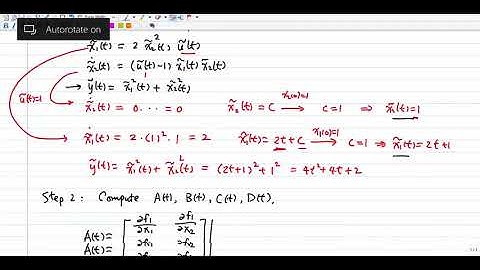 Autorotate on
ẋ̃₁(t) = 2 x̃₂²(t) ũ(t)
ẋ̃₂(t) = (ũ(t)-1) x̃₁(t) x̃₂(t)
ỹ(t) = x̃₁²(t) + x̃₂²(t)
ũ(t)=1
ẋ̃₂(t) = 0 · ... = 0 x̃₂(t) = C x₂(0)=1 → C=1 ⇒ x̃₂(t)=1
ẋ̃₁(t) = 2·(1)²·1 = 2 x̃₁(t) = 2t+C x₁(0)=1 → C=1 ⇒ x̃₁(t)=2t+1
ỹ(t) = x̃₁²(t) + x̃₂²(t) = (2t+1)² + 1² = 4t²+4t+2
Step 2: Compute A(t), B(t), C(t), D(t),
∂f₁ ∂f₁
A(t) = ∂x₁ ∂x₂
A(t) =